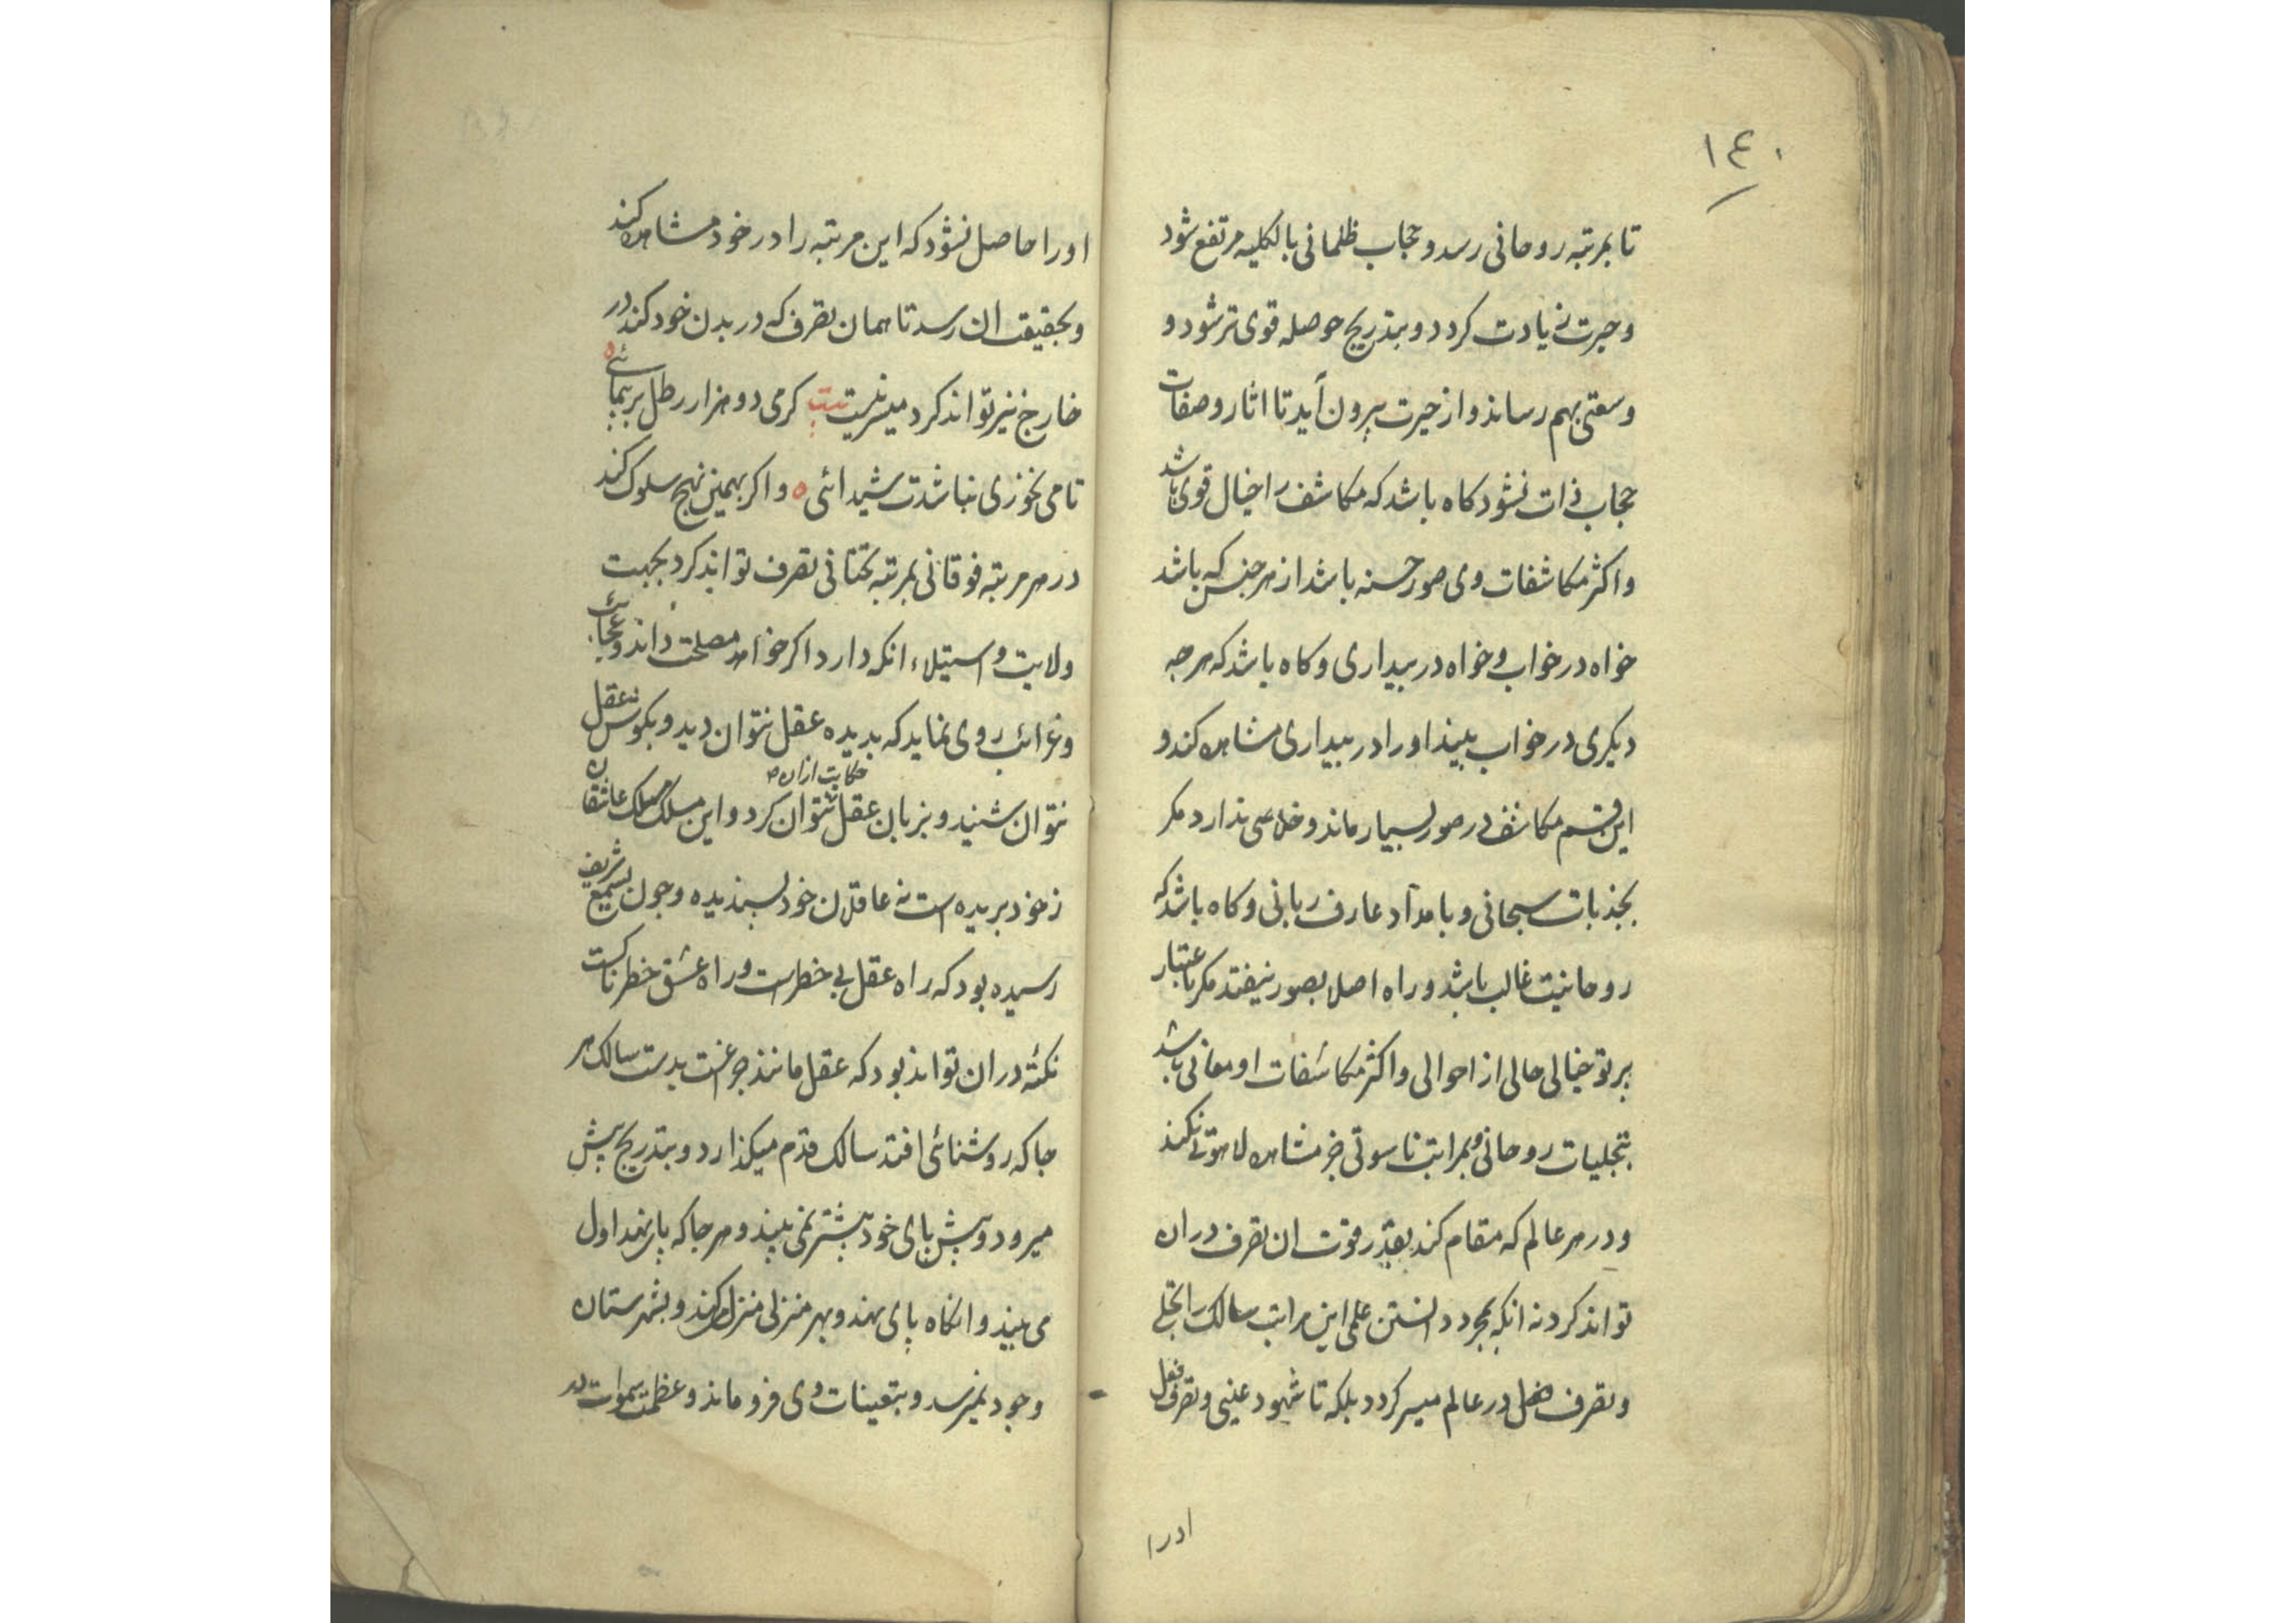 ١٤٠
تا بمرتبه روحانی رسد و حجاب ظلمانی بالکلیه مرتفع شود
و حیرت زیادت کردد و بتدریج حوصله قوی تر شود و
وسعتی بهم رساند و از حیرت بیرون آید تا اثار و صفات
حجاب ذات نشود کاه باشد که مکاشف را خیال قوی باشد
و اکثر مکاشفات وی صور حسنه باشد از هر جنس که باشد
خواه در خواب و خواه در بیداری و کاه باشد که هر چه
دیکری در خواب بیند او را در بیداری مشاهده کند و
این قسم مکاشف در صور بسیار ماند و خلاصی ندارد مکر
بجذبات سبحانی و بامداد عارف ربانی و کاه باشد که
روحانیت غالب باشد و راه اصلا بصور نیفتد مکر باعتبار
پرتو خیالی حالی از احوالی و اکثر مکاشفات او معانی باشد
بتجلیات روحانی و بمراتب ناسوتی جز مشاهده لاهوتی نکند
و در هر عالم که مقام کند بقدر قوت ان تصرف دران
تواند کرد نه انکه بمجرد دانستن علمی این مراتب سالک را تجلی
و تصرف در عالم میسر کردد بلکه تا شهود عینی و تصرف فعل
اورا
اورا حاصل نشود که این مرتبه را در خود مشاهده کند
و بحقیقت ان رسد تا همان تصرف که در بدن خود کند در
خارج نیز تواند کرد میسر نیست بیت کر می دو هزار رطل بر پیمائی
تا می نخوری نباشدت شیدائی و اکر بهمین نهج سلوک کند
در هر مرتبه فوقانی بمرتبه تحتانی تصرف تواند کرد بجهت
ولایت و استیلاء انکه دارد اکر خواهد مصلحت داند و عجائب
و غرائب روی نماید که بدیده عقل نتوان دید و بکوش عقل
حکایت ازان
نتوان شنید و بزبان عقل نتوان کرد و این مسلک مسلک عاشقان
ز خود بریده است نه عاقلان خود پسندیده و چون بسمع شریف
رسیده بود که راه عقل بی خطر است و راه عشق خطرناکست
نکته دران تواند بود که عقل مانند چراغست بدست سالک هر
جا که روشنائی افتد سالک قدم میکذارد و بتدریج پیش
میرود و پیش پای خود بیشتر نمی بیند و هر جا که پا نهد اول
می بیند و انکاه پای نهد و بهر منزلی منزل کند و بشهرستان
وجود نمیرسد و بتعینات وی فرو ماند و عظمت سموات